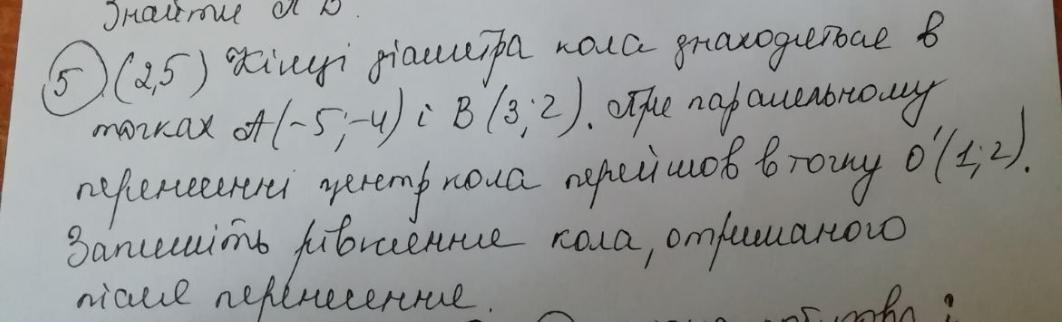 Знайти A B
5 (2,5) Кінці діаметра кола знаходяться в
точках A(-5;-4) і B(3;2). При паралельному
перенесенні центр кола перейшов в точку O'(1;2).
Запишіть рівняння кола, отриманого
після перенесення.